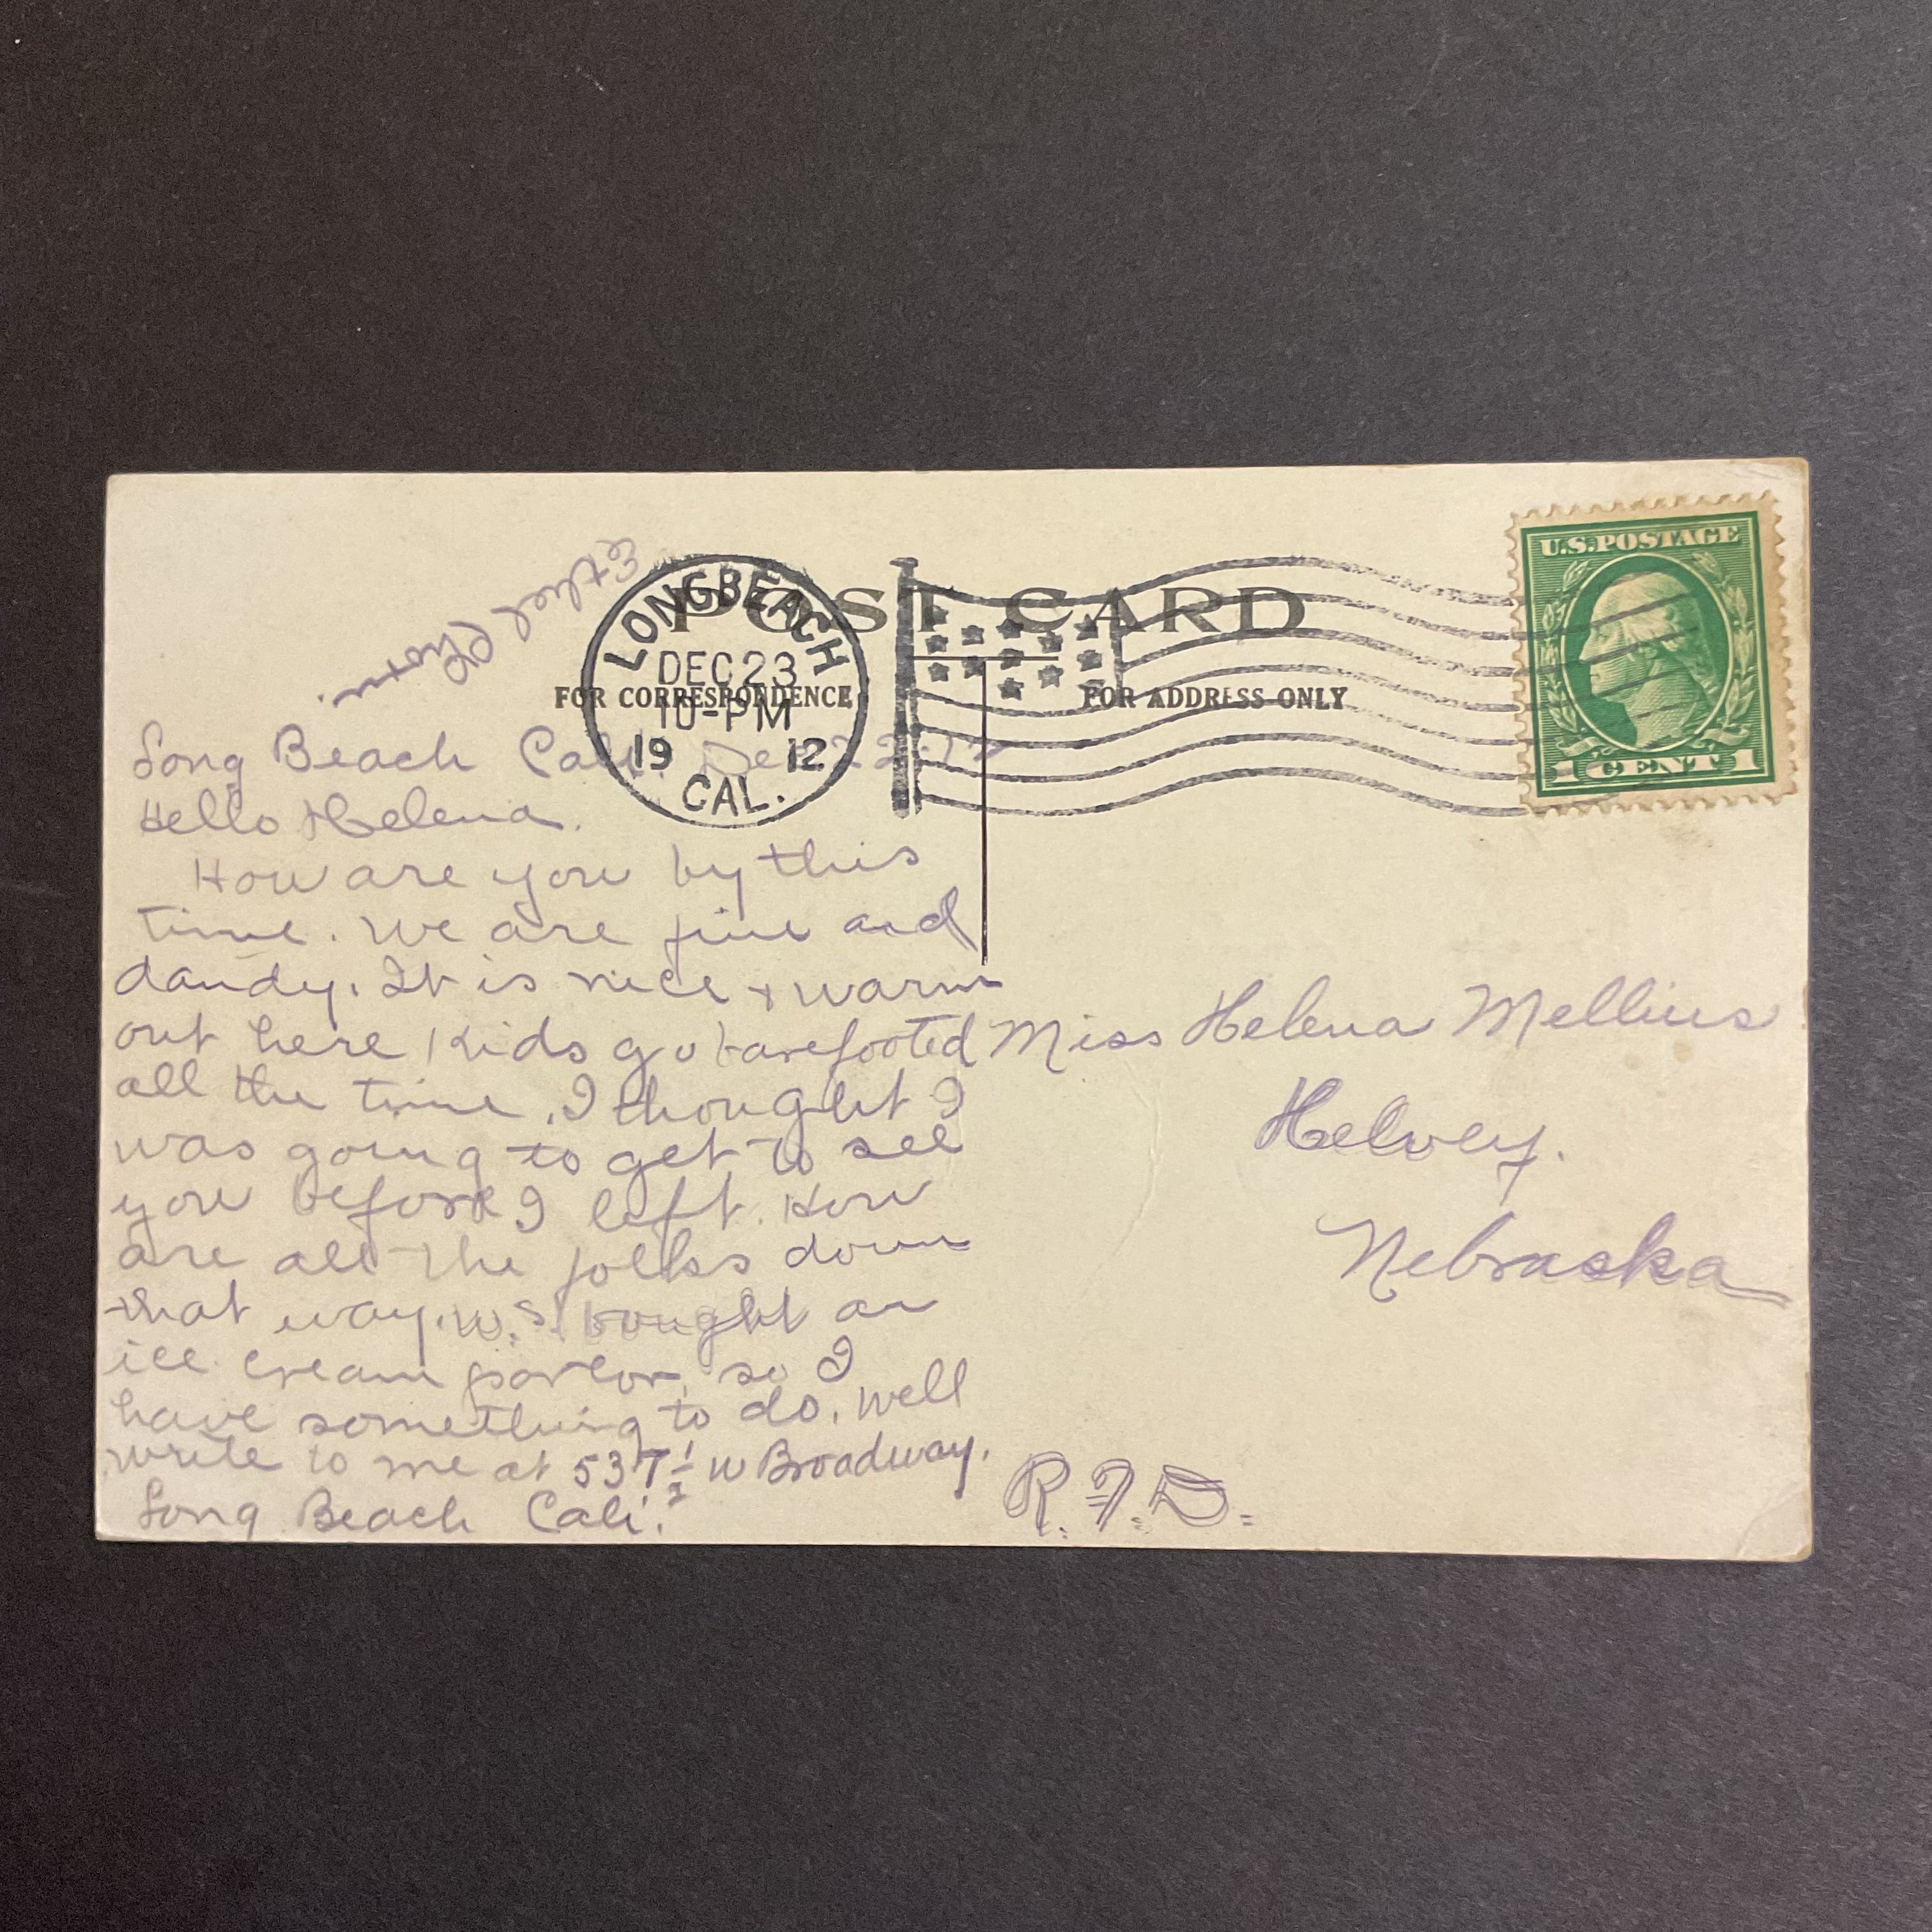 POST CARD
FOR CORRESPONDENCE
FOR ADDRESS ONLY
LONG BEACH
DEC 23
10-PM
19 12
CAL.
U.S. POSTAGE
1 CENT 1
Ethel
Long Beach Cali. Dec 22-12
Hello Helena.
How are you by this
time. We are fine and
dandy. It is nice + warm
out here Kids go barefooted
all the time. I thought I
was going to get to see
you before I left. How
are all the folks down
that way. W.S. bought an
ice cream parlor, so I
have something to do. Well
write to me at 537 1/2 W Broadway.
Long Beach Cali.
Miss Helena Mellius
Helvey.
Nebraska
R.F.D.